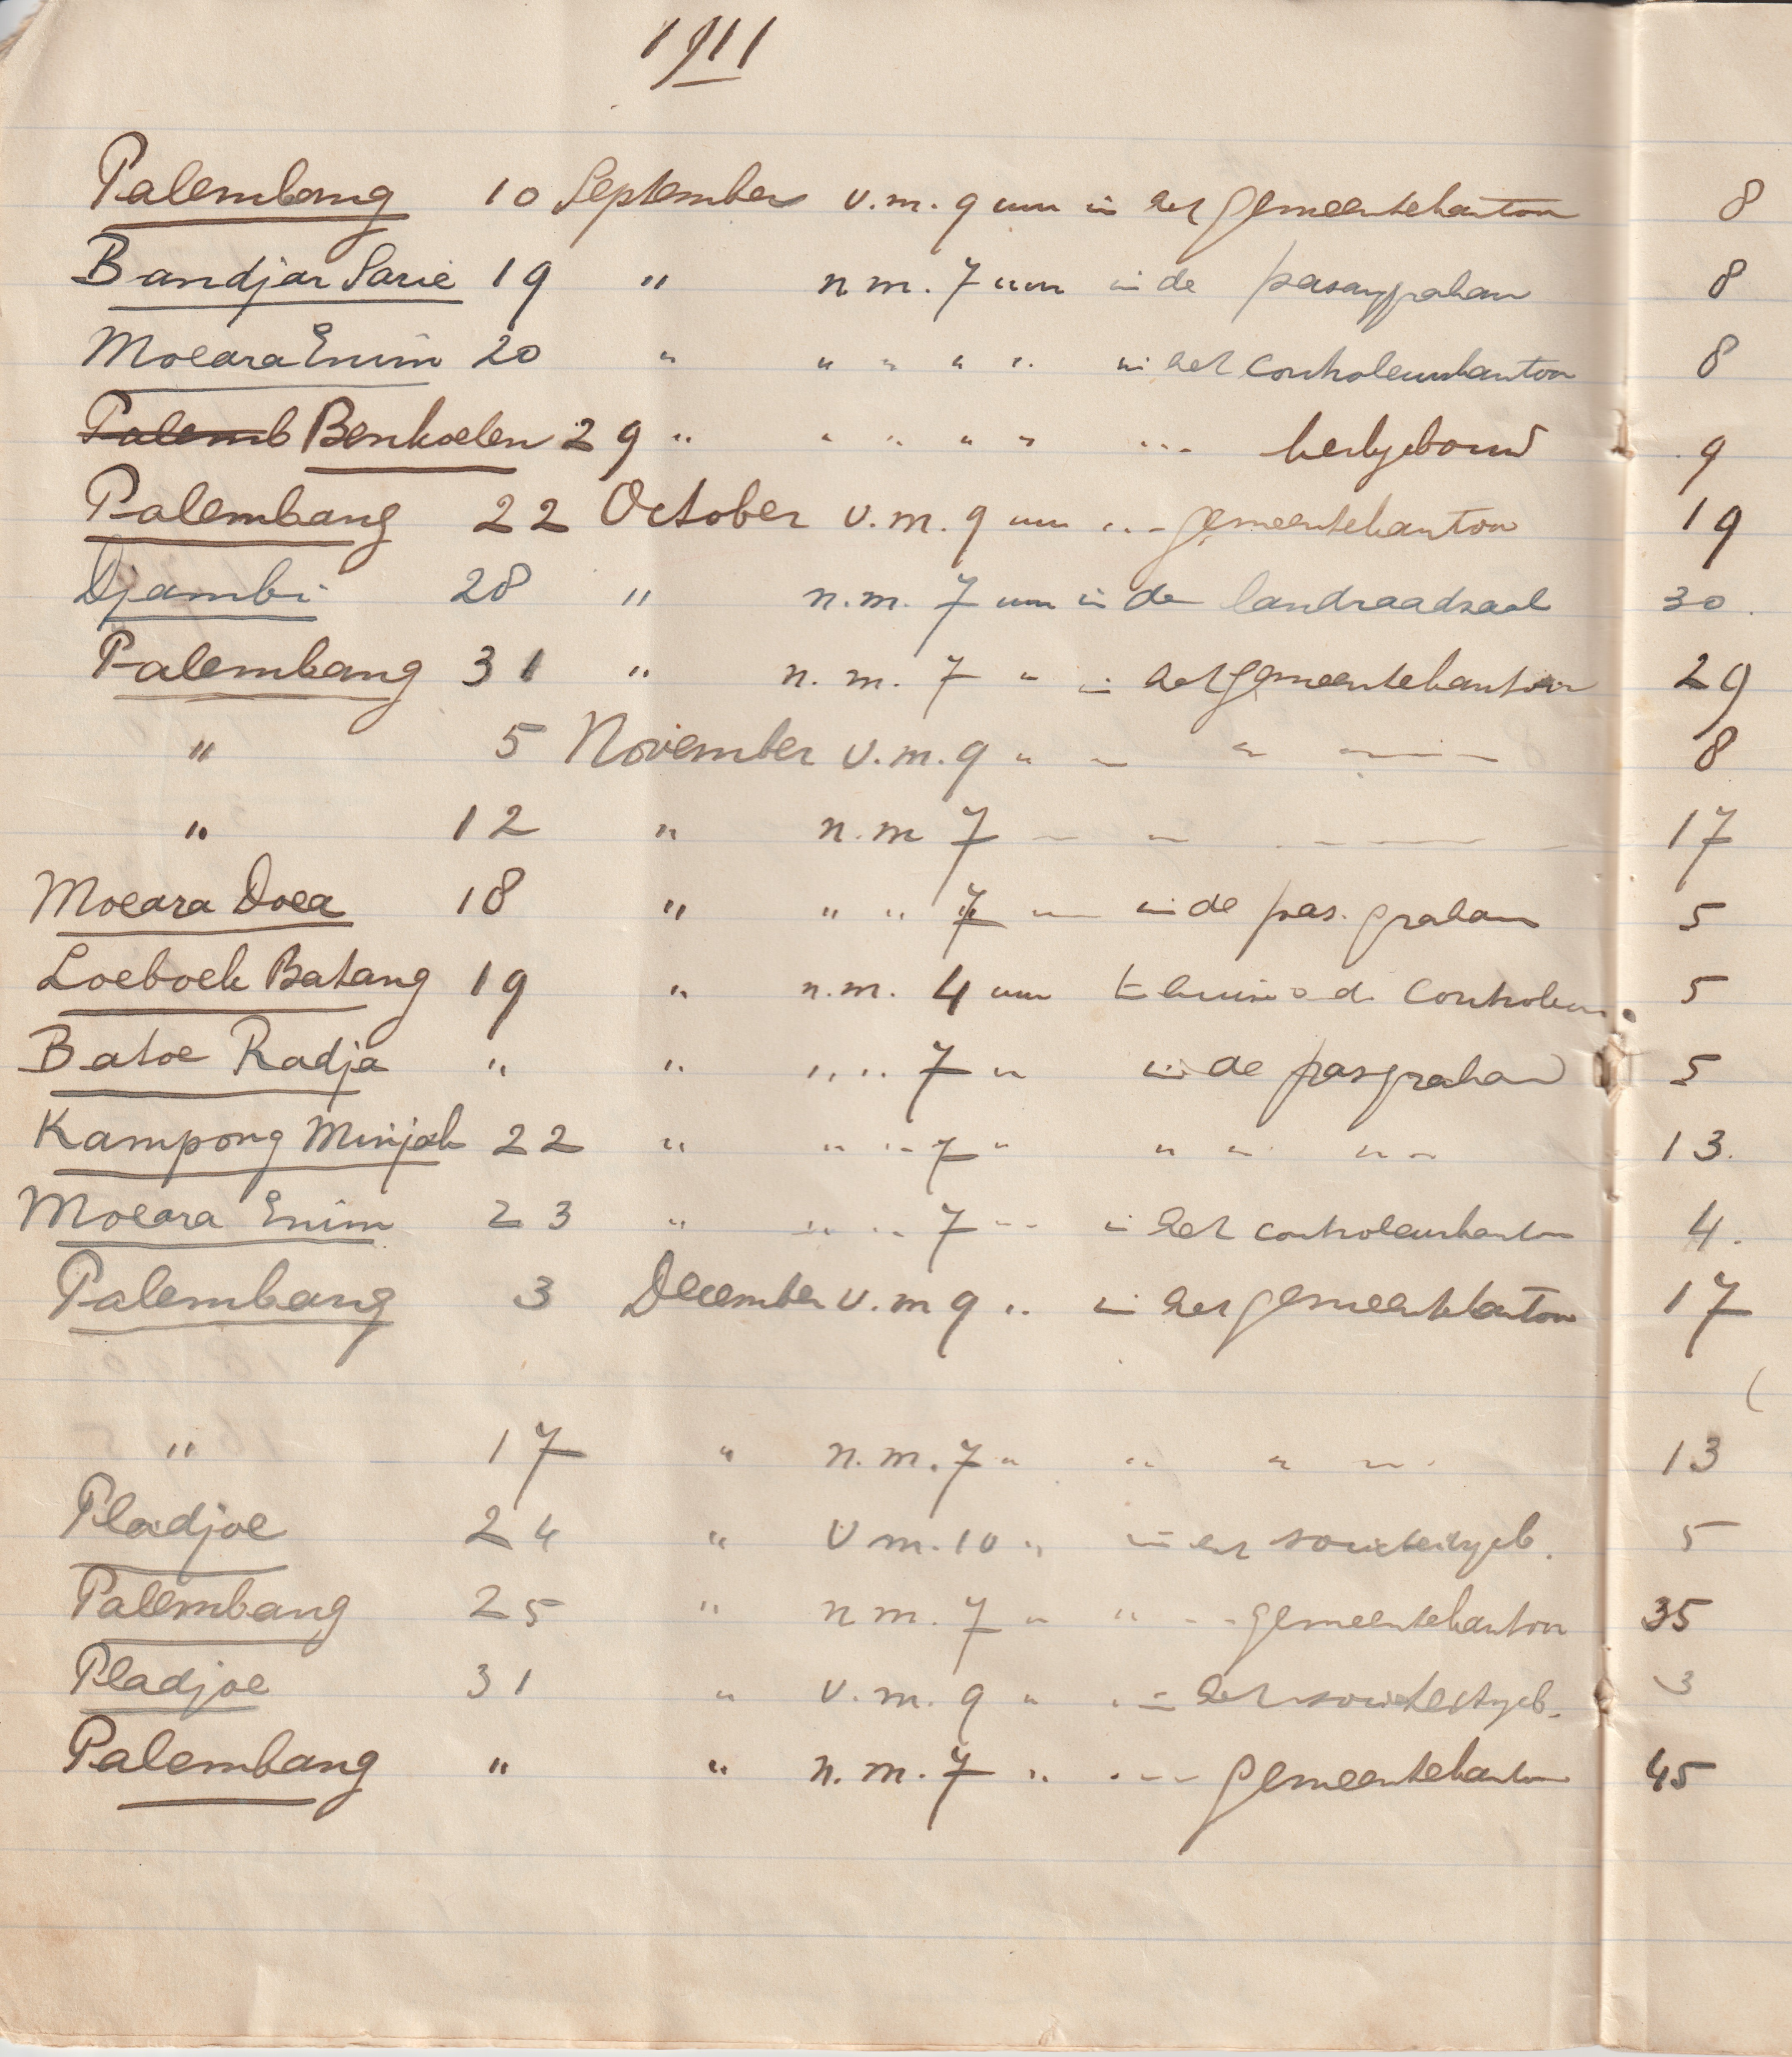 1911
Palembang 10 September v.m. 9 uur in het gemeentekantoor 8
Bandjar Sarie 19 " n m. 7 uur in de pasangrahan 8
Moeara Enim 20 " " " " " in het controleurskantoor 8
Palemb Benkoelen 29 " " " " " " " kerkgebouw 9
Palembang 22 October v.m. 9 uur " " gemeentekantoor 19
Djambi 28 " n.m. 7 uur in de landraadzaal 30.
Palembang 31 " n.m. 7 " in het gemeentekantoor 29
" 5 November v.m. 9 " " " " 8
" 12 " n.m 7 " " " 17
Moeara Doea 18 " " " 7 " in de pas. grahan 5
Loeboek Batang 19 " n.m. 4 uur controleur 5
Batoe Radja " " " " 7 " in de pasgrahan 5
Kampong Minjak 22 " " " 7 " " " " " 13.
Moeara Enim 23 " " " 7 " in het controleurskantoor 4.
Palembang 3 December v.m 9 " in het gemeentekantoor 17
" 17 " n.m. 7 " " " " 13
Pladjoe 24 " v m. 10 " in het societeitgeb. 5
Palembang 25 " n m. 7 " " " gemeentekantoor 35
Pladjoe 31 " v.m. 9 " in het societeitgeb. 3
Palembang " " n.m. 7 " " " gemeentekantoor 45